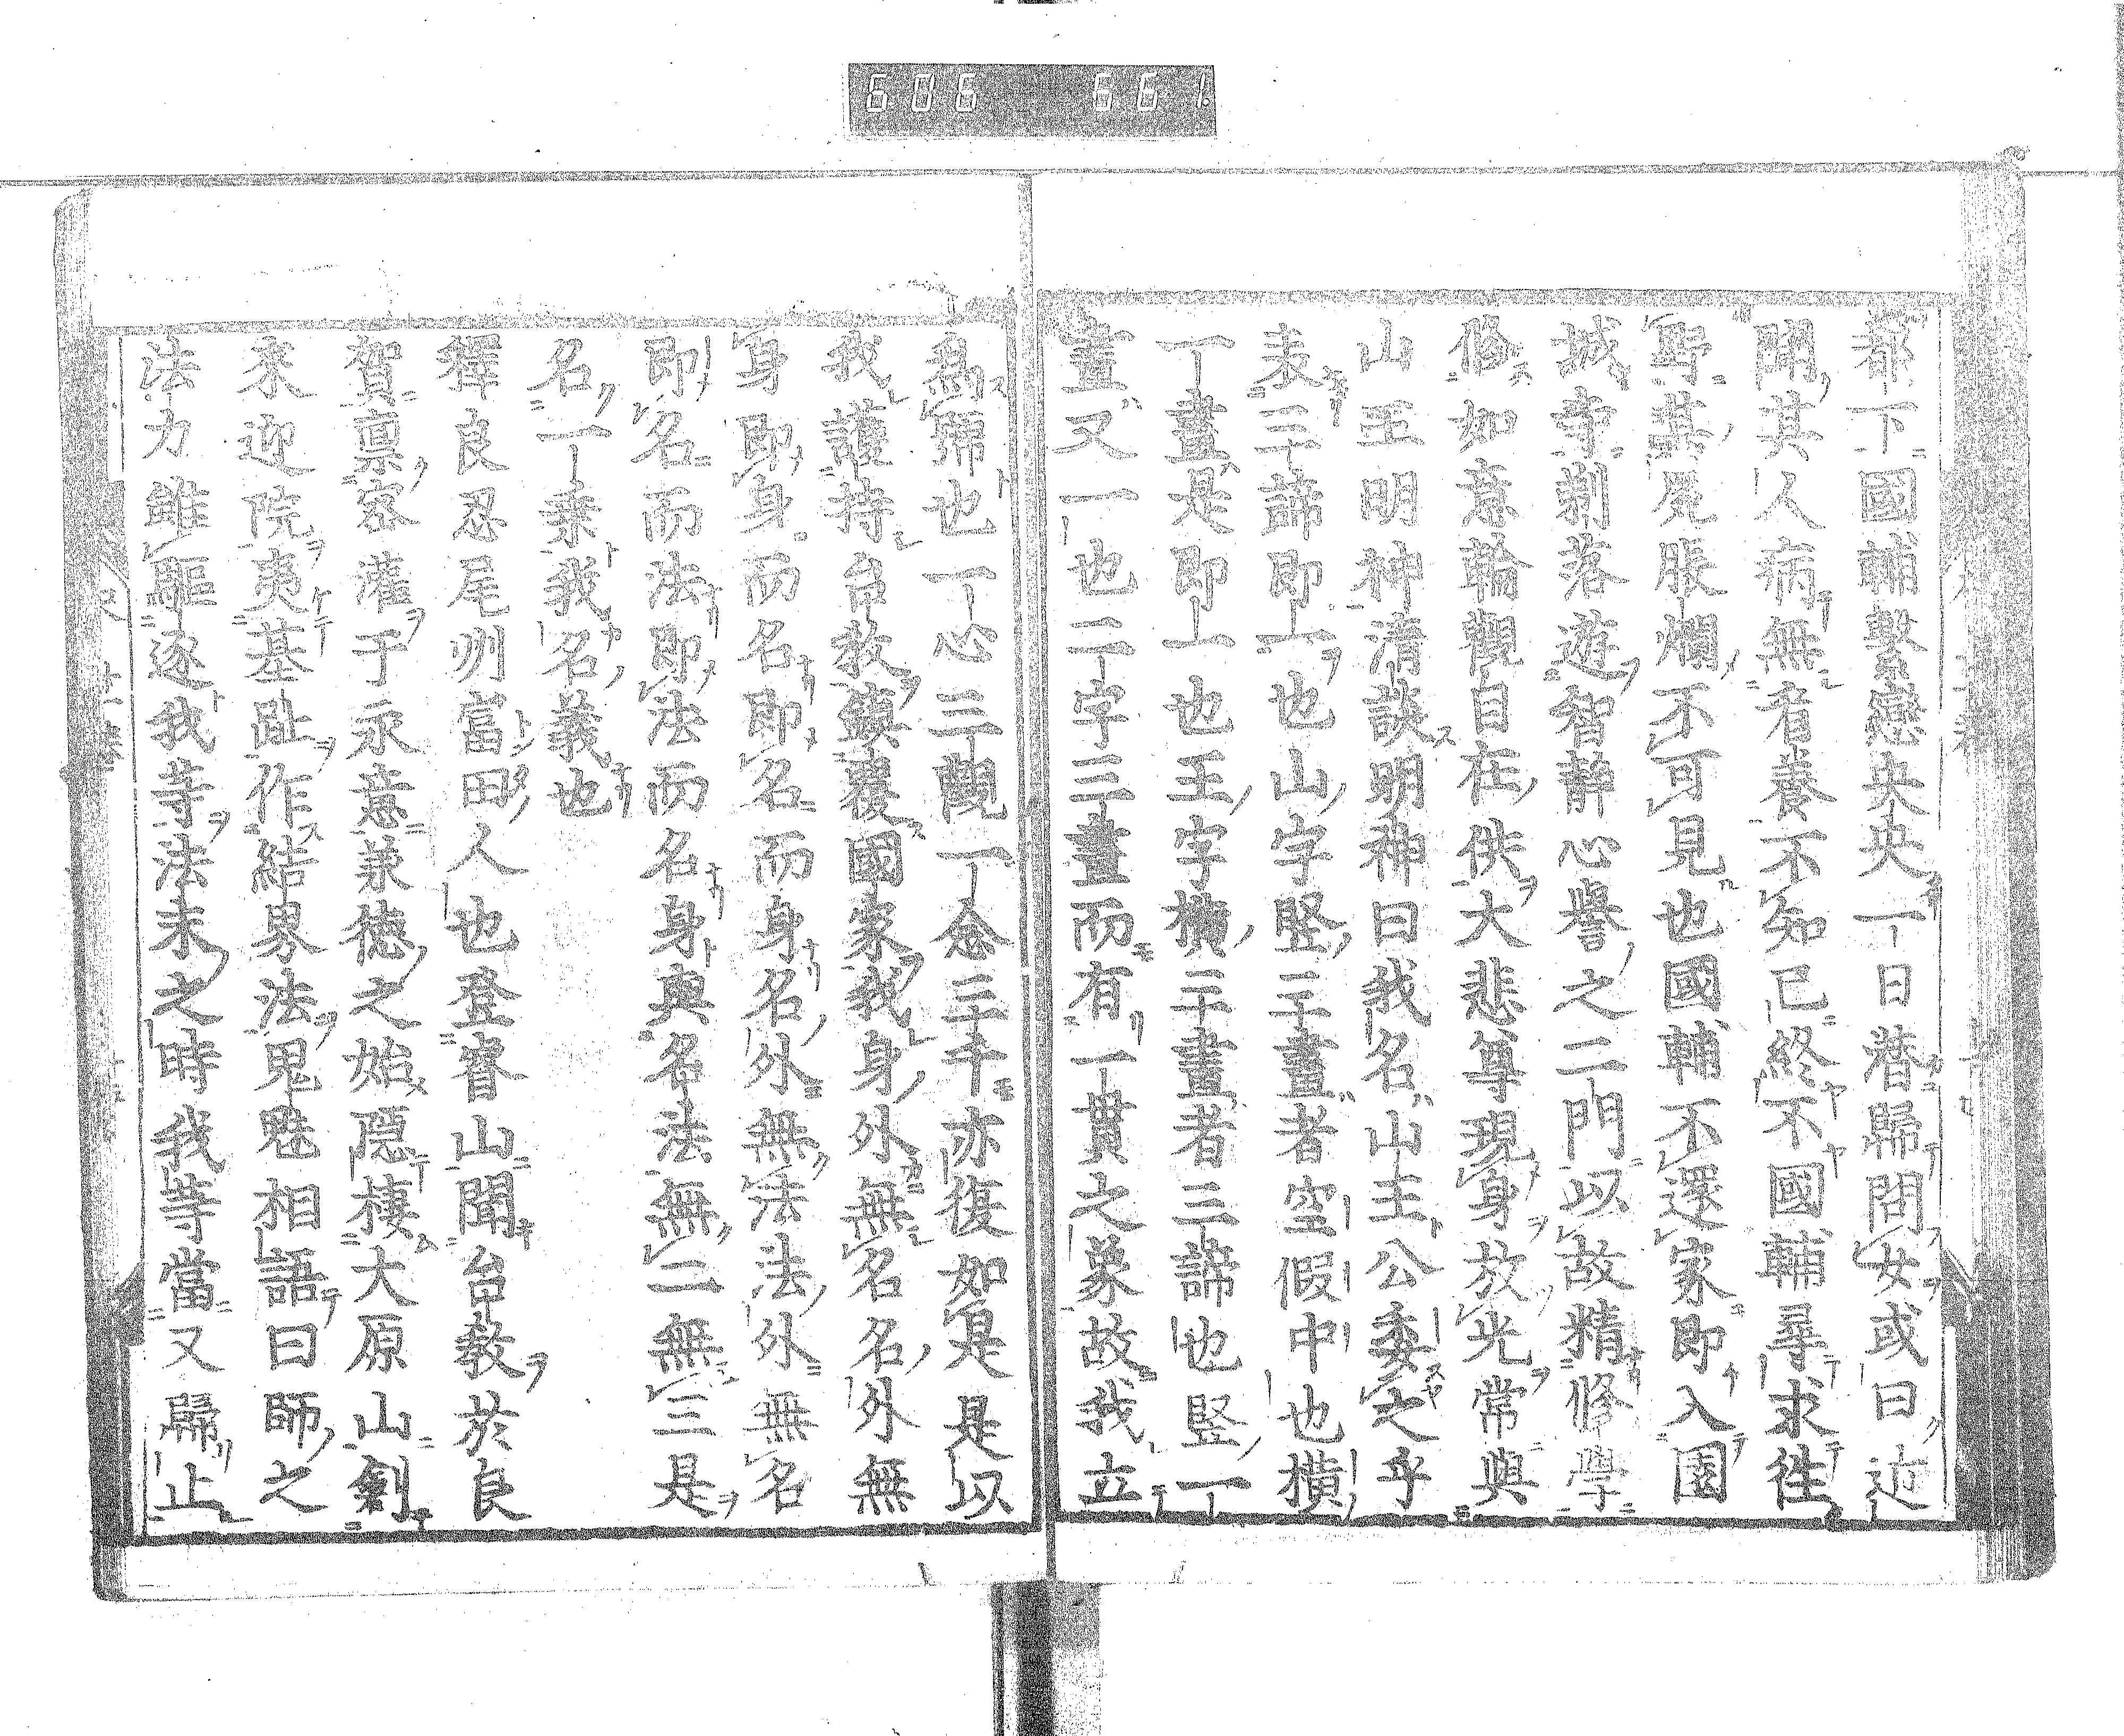 606 661
都下國輔繫戀央央一日潛歸問女或曰近
聞其人病無看養不知已終不國輔尋求徃
野其屍脹爛不可見也國輔不還家即入園
城寺剃落遊智靜心譽之二門以故精修學
脩如意輪觀自在供大悲尊現身放光常與
山王明神清談明神曰我名山王公委之乎
表三諦即一也山字竪三畫者空假中也横
一畫是即一也王字横三畫者三諦也竪一
畫又一也二字三畫而有一貫之象故我立
爲號也一心三觀一念三千亦復如是是以
我護持台教鎮覆國家我身外無名名外無
身即身而名即名而身名外無法法外無名
即名而法即法而名身與名法無二無三是
名一乘我名義也
釋良忍尾州富田人也登睿山聞台教於良
賀稟密灌于永意兼徳之始隠棲大原山創
來迎院夷基趾作結界法鬼魅相語曰師之
法力雖驅逐我等法末之時我等當又歸止